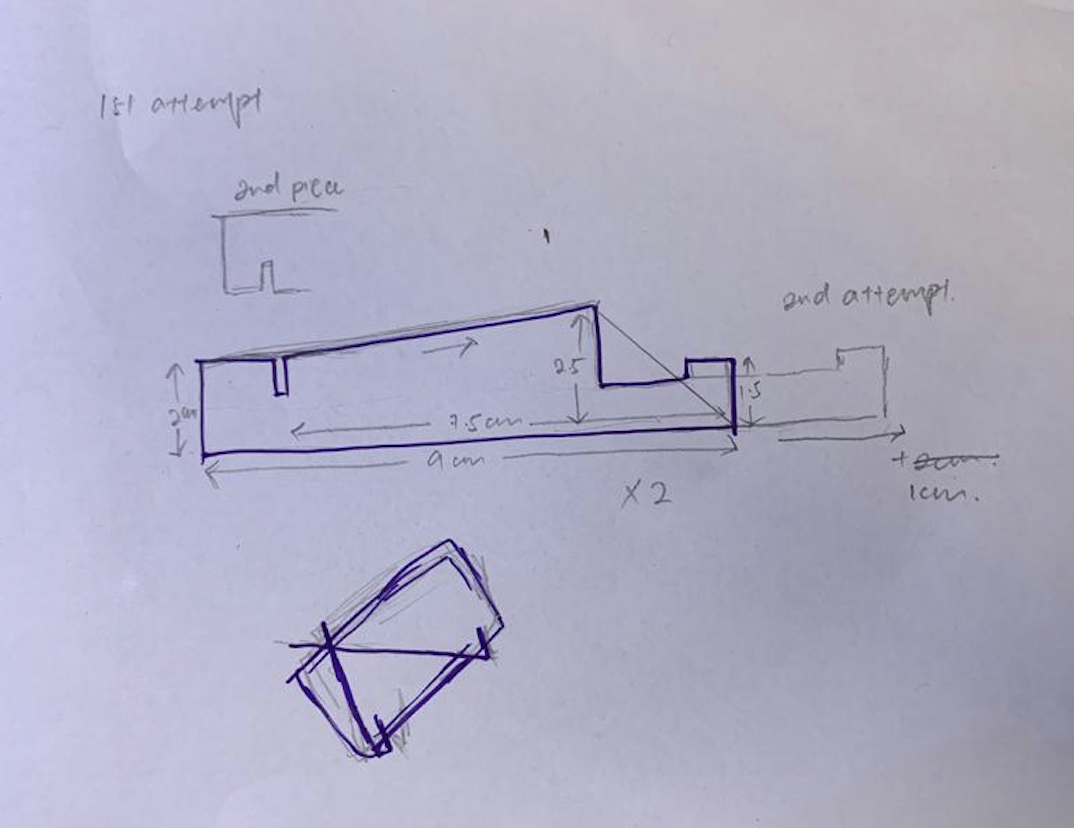 1st attempt
2nd piece
2nd attempt.
2.5
2cm
1.5
7.5cm
9cm
+ 2cm.
1cm.
X2